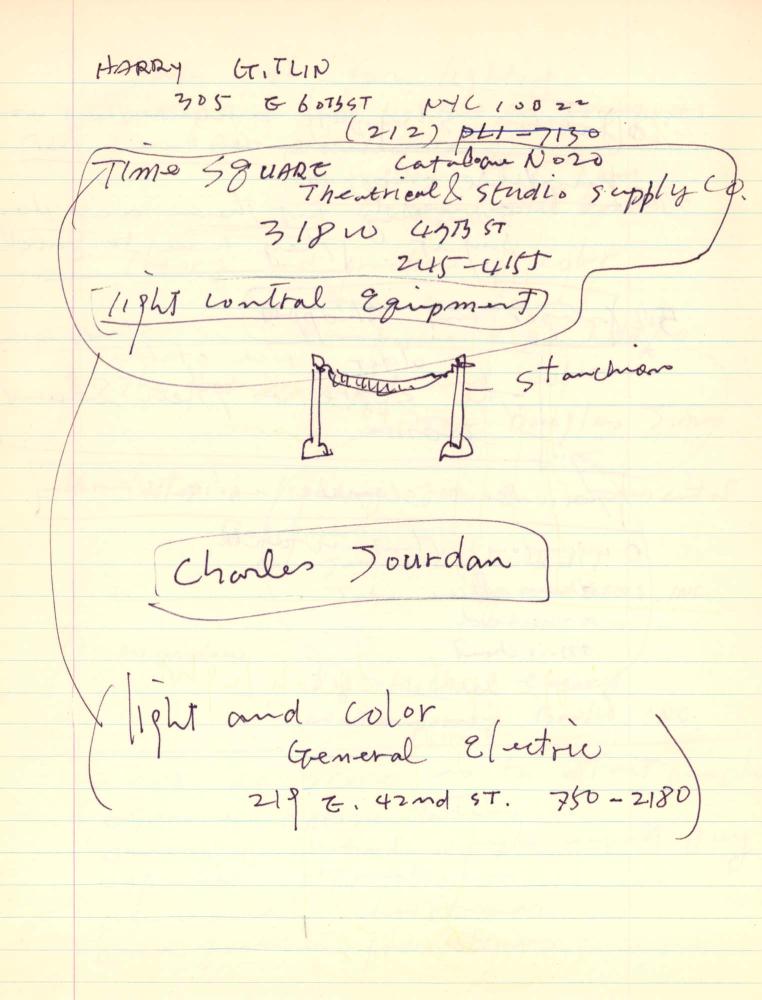 HARRY GITLIN
305 E 60TH ST NYC 10022
(212) PL1-7130
Time SQUARE Catalogue No20
Theatrical & Studio supply Co.
318 W 47TH ST
245-4155
light control Equipment
stanchion
Charles Jourdan
light and color
General Electric
219 E. 42nd ST. 750-2180